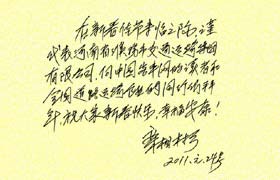 在新春佳节来临之际,谨
代表河南省濮阳市交通运输集团
有限公司,向中国客车网的读者和
全国道路运输企业的同行们拜
年,祝大家新春快乐,幸福安康!
2011.2.2